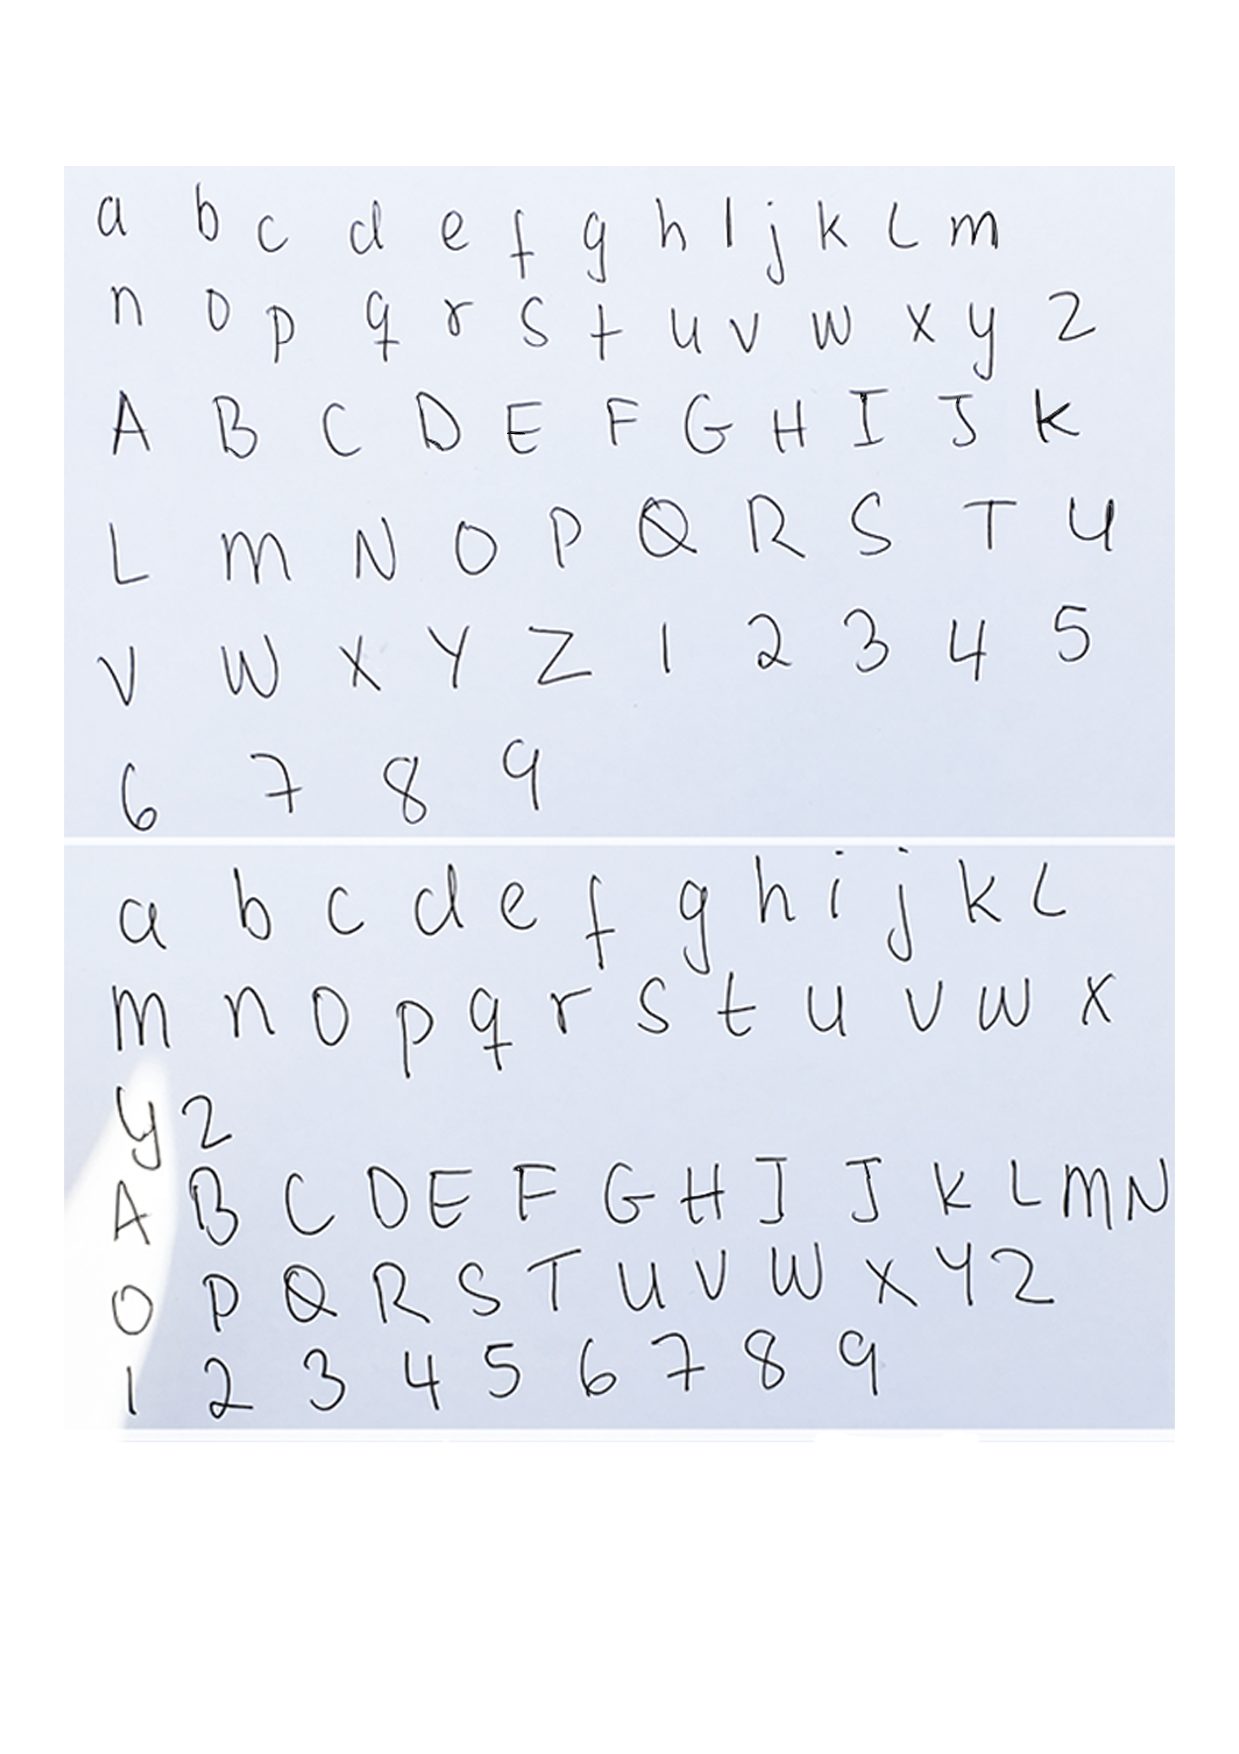 a b c d e f g h l j k L m
n o p q r s t u v w x y z
A B C D E F G H I J K
L M N O P Q R S T U
V W X Y Z 1 2 3 4 5
6 7 8 9
a b c d e f g h i j k L
m n o p q r s t u v w x
y z
A B C D E F G H I J K L M N
O P Q R S T U V W X Y Z
1 2 3 4 5 6 7 8 9